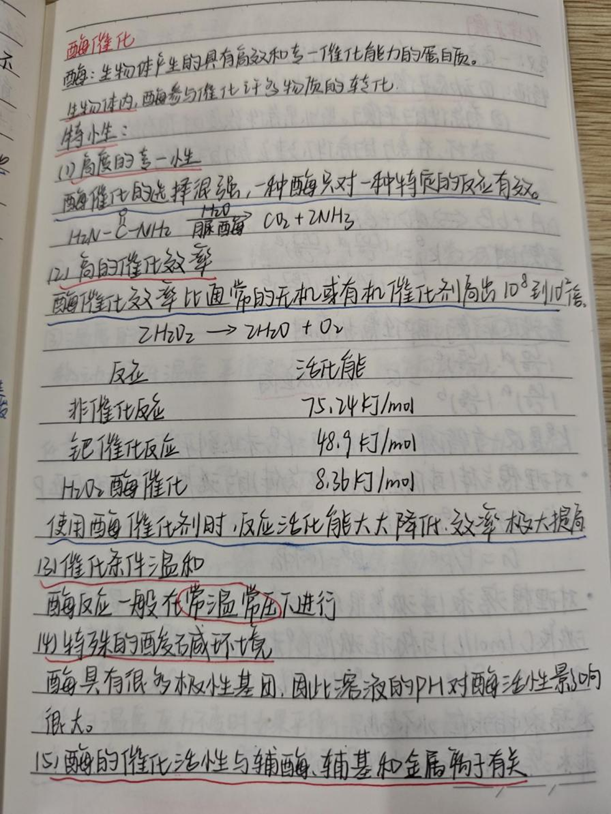 酶催化
酶：生物体产生的具有高效和专一催化能力的蛋白质。
生物体内，酶参与催化许多物质的转化
特性：
(1)高度的专一性
酶催化的选择很强，一种酶只对一种特定的反应有效。
H₂N-C(=O)-NH₂ —H₂O/脲酶→ CO₂+2NH₃
(2)高的催化效率
酶催化效率比通常的无机或有机催化剂高出10⁸到10¹²倍。
2H₂O₂ → 2H₂O + O₂
反应 活化能
非催化反应 75.24kJ/mol
钯催化反应 48.9kJ/mol
H₂O₂酶催化 8.36kJ/mol
使用酶催化剂时，反应活化能大大降低，效率极大提高
(3)催化条件温和
酶反应一般在常温常压下进行
(4)特殊的酸碱环境
酶具有很多极性基团，因此溶液的PH对酶活性影响
很大。
(5)酶的催化活性与辅酶、辅基和金属离子有关